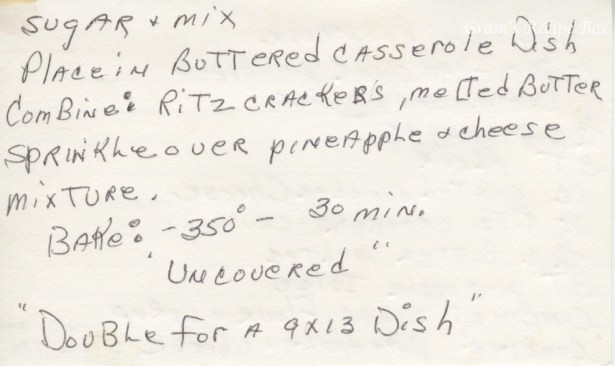 Gram's Recipe Box
SUGAR & MIX
PLACE IN BUTTERED CASSEROLE DISH
COMBINE: RITZ CRACKERS, MELTED BUTTER
SPRINKLE OVER PINEAPPLE & CHEESE
MIXTURE.
BAKE: - 350° - 30 MIN.
"UNCOVERED"
"DOUBLE FOR A 9X13 DISH"